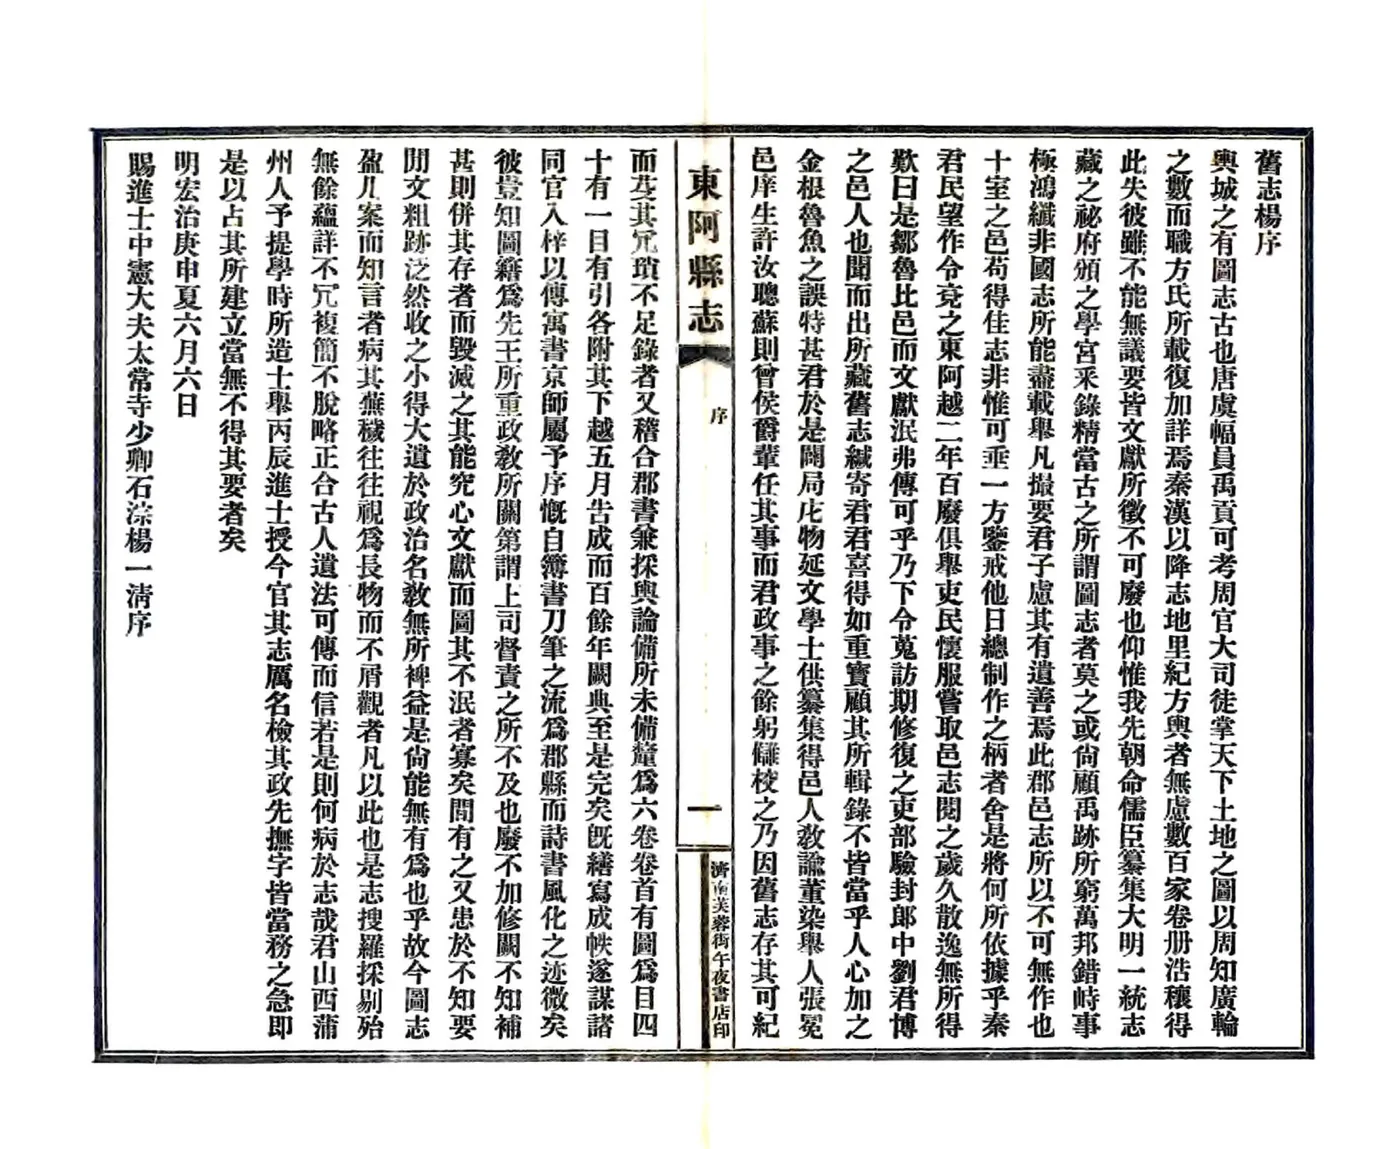 舊志楊序
輿城之有圖志古也唐虞幅員禹貢可考周官大司徒掌天下土地之圖以周知廣輪
之數而職方氏所載復加詳焉秦漢以降志地里紀方輿者無慮數百家卷册浩穰得
此失彼雖不能無議要皆文獻所徵不可廢也仰惟我先朝命儒臣纂集大明一統志
藏之祕府頒之學宮釆錄精當古之所謂圖志者莫之或尙顧禹跡所窮萬邦錯峙事
極鴻纖非國志所能盡載舉凡撮要君子慮其有遺善焉此郡邑志所以不可無作也
十室之邑苟得佳志非惟可垂一方鑒戒他日總制作之柄者舍是將何所依據乎秦
君民望作令兗之東阿越二年百廢俱舉吏民懷服嘗取邑志閱之歲久散逸無所得
歎曰是鄒魯比邑而文獻泯弗傳可乎乃下令蒐訪期修復之吏部驗封郎中劉君博
之邑人也聞而出所藏舊志緘寄君君喜得如重寳顧其所輯錄不皆當乎人心加之
金根魯魚之誤特甚君於是闢局庀物延文學士供纂集得邑人敎諭董染舉人張冕
邑庠生許汝聰蘇則曾侯爵輩任其事而君政事之餘躬讎校之乃因舊志存其可紀
東阿縣志
序
一
濟南芙蓉街午夜書店印
而芟其冗瑣不足錄者又稽合郡書兼採輿論備所未備釐爲六卷卷首有圖爲目四
十有一目有引各附其下越五月吿成而百餘年闕典至是完矣旣繕寫成帙遂謀諸
同官入梓以傳寓書京師屬予序慨自簿書刀筆之流爲郡縣而詩書風化之迹微矣
彼豈知圖籍爲先王所重政敎所關第謂上司督責之所不及也廢不加修闕不知補
甚則併其存者而毀滅之其能究心文獻而圖其不泯者寡矣間有之又患於不知要
閒文粗跡泛然收之小得大遺於政治名敎無所裨益是尙能無有爲也乎故今圖志
盈几案而知言者病其蕪穢往往視爲長物而不屑觀者凡以此也是志搜羅採剔殆
無餘蘊詳不冗複簡不脫略正合古人遺法可傳而信若是則何病於志哉君山西蒲
州人予提學時所造士舉丙辰進士授今官其志厲名檢其政先撫字皆當務之急即
是以占其所建立當無不得其要者矣
明宏治庚申夏六月六日
賜進士中憲大夫太常寺少卿石淙楊一淸序